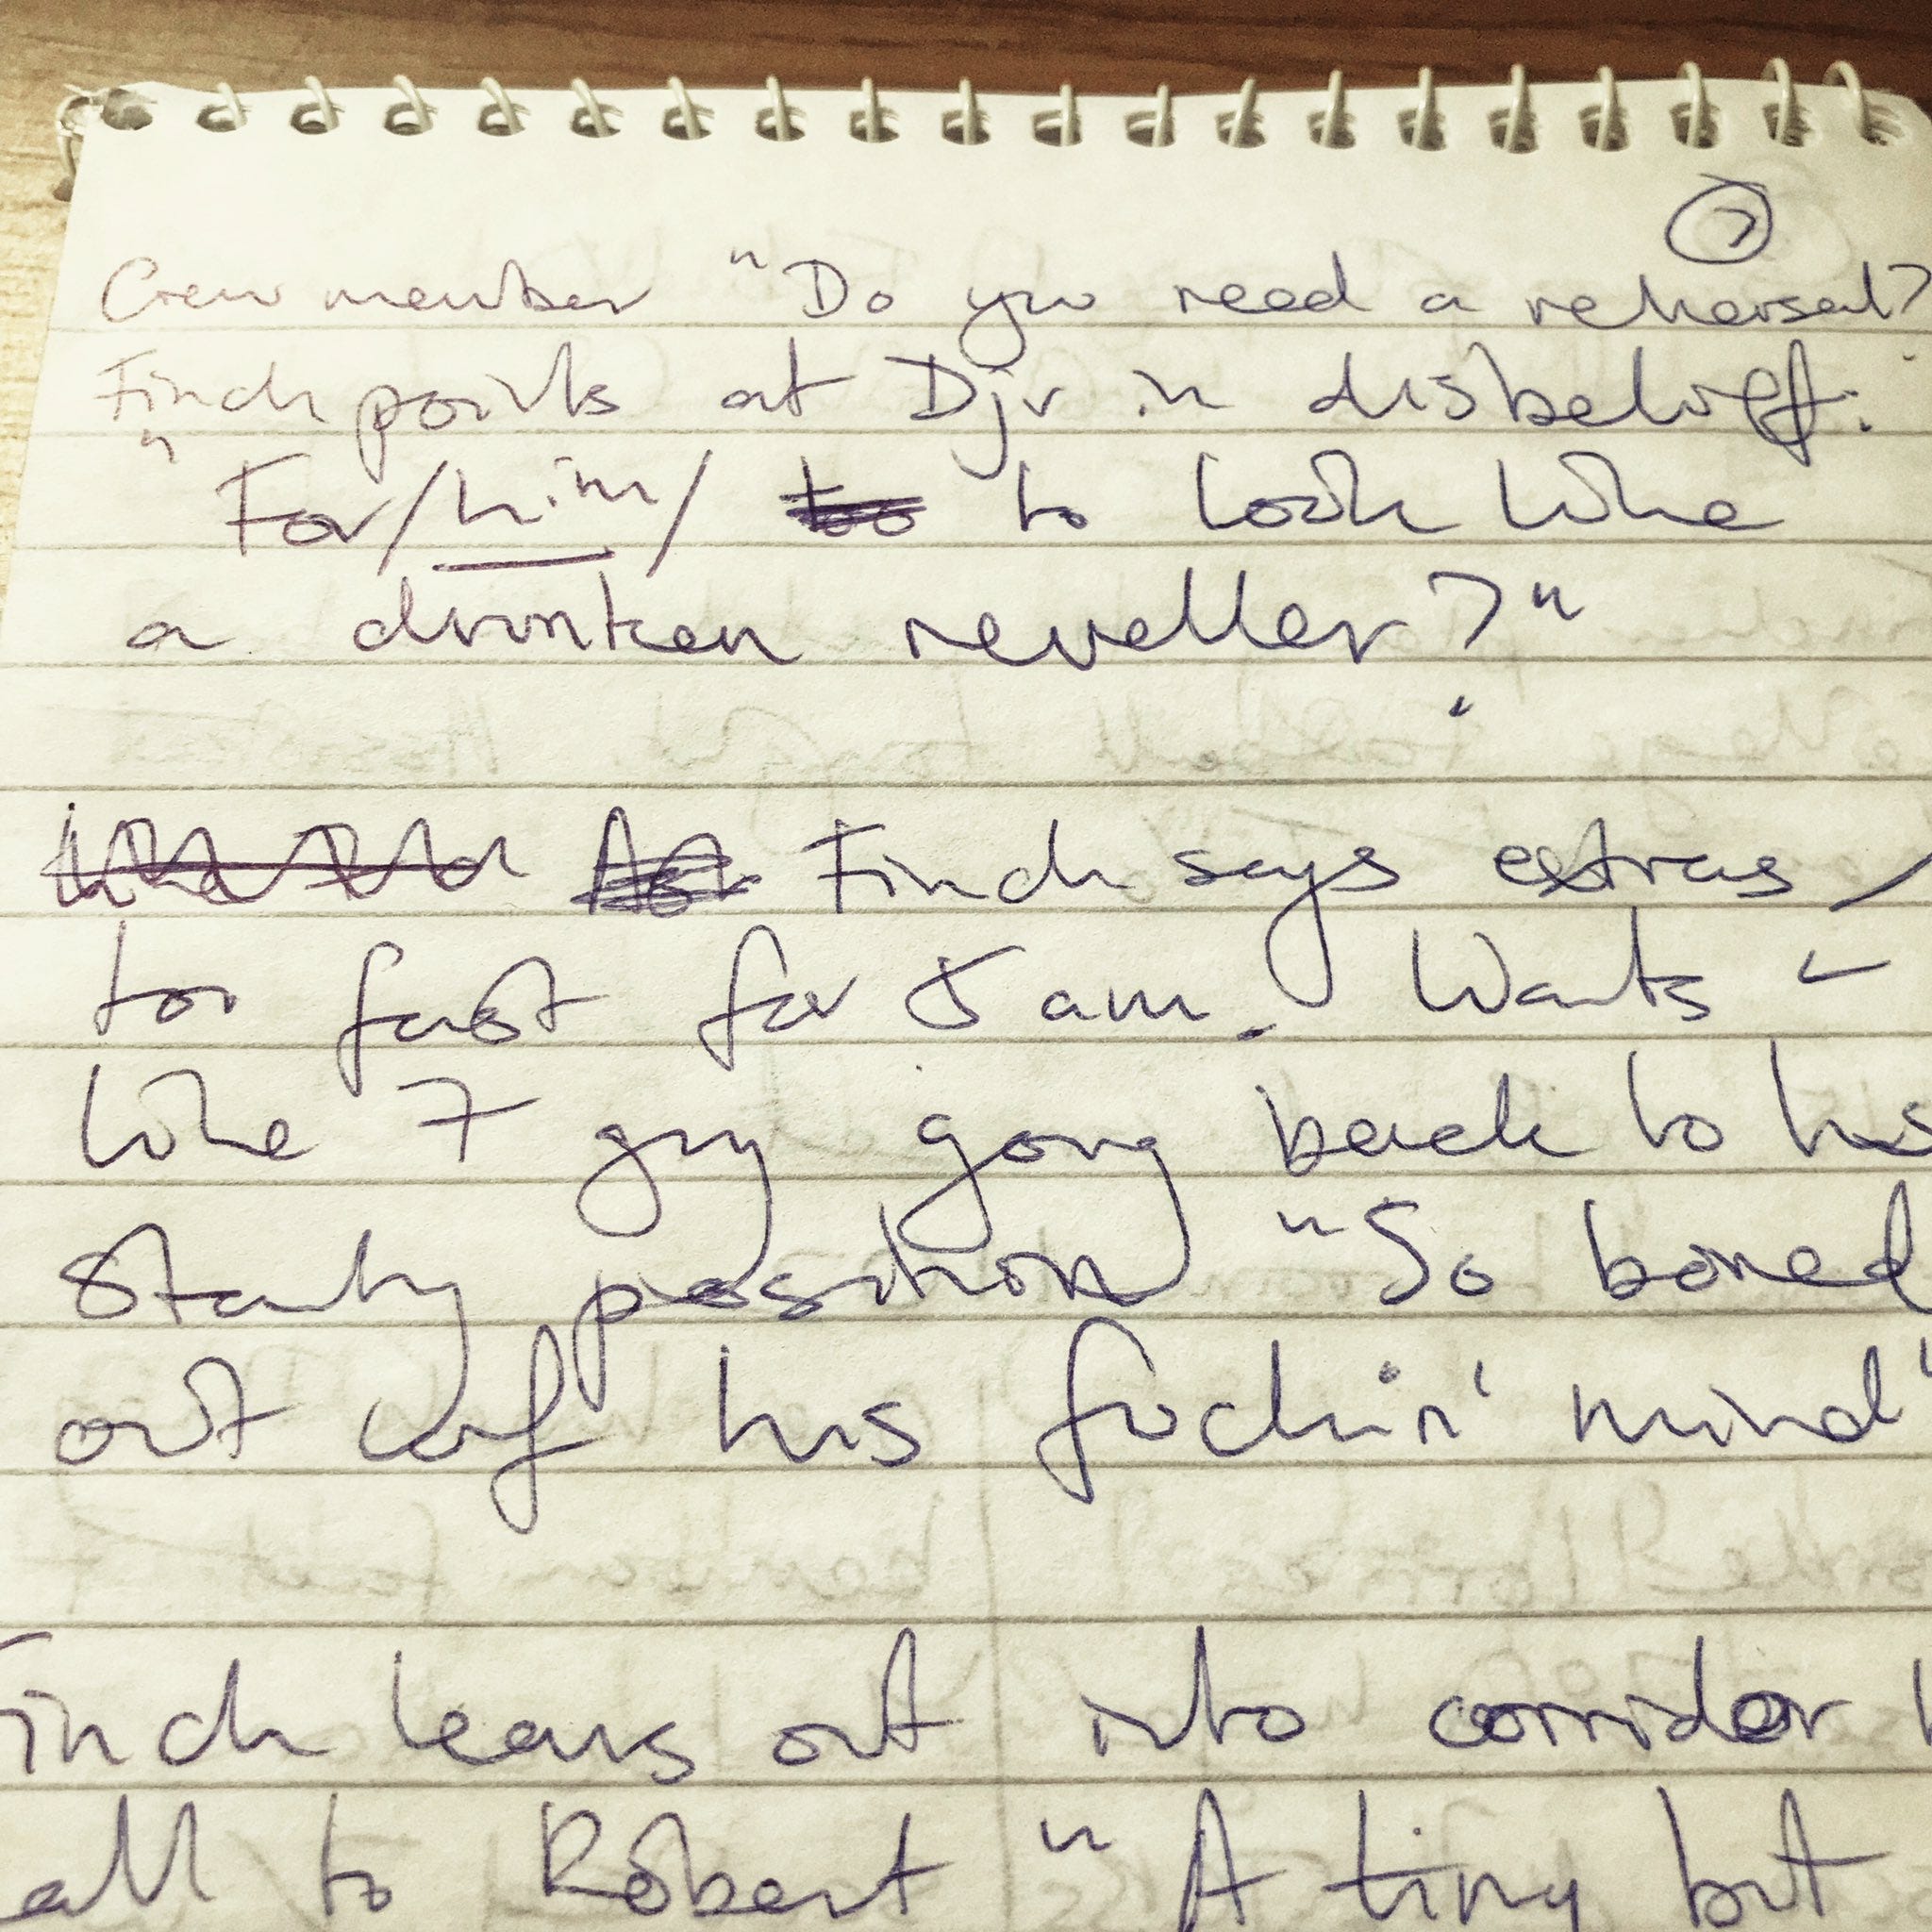 7
Crew member "Do you need a rehersal?
Finch points at Djv in disbelieff:
"For /him/ to look like
a drunken reveller?"
Finch says extras
too fast for 5 am. Wants
like 7 guy going back to his
starting position "So bored
out of his fuckin' mind"
Finch leans out into corridor
call to Robert "A tiny bit